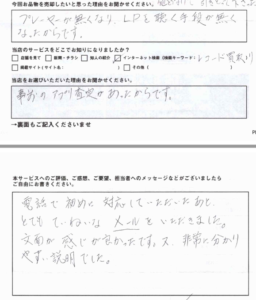 今回お品物を売却したいと思った理由をお聞かせください。
プレーヤーが無くなり、LPを聴く手段が無く
なったからです。
当店のサービスをどこでお知りになりましたか？
□店舗を見て □新聞・チラシ □知人の紹介 ☑インターネット検索（検索キーワード：レコード買取り
□掲載サイト（サイト名： ） □その他（
当店をお選びいただいた理由をお聞かせください。
事前の 査定があったからです。
→裏面もご記入くださいませ
本サービスへのご評価、ご感想、ご要望、担当者へのメッセージなどがございましたら
ご自由にお書きください。
電話で初めに対応していただいたあと、
とてもていねいなメールをいただきました。
文面が感じが良かったです。又、非常に分かり
やすい説明でした。